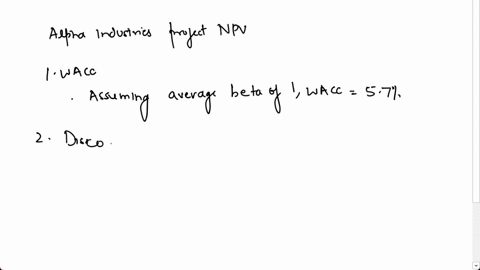 Alpha Industries project NPV
1. WACC
. Assuming average beta of 1, WACC = 5.7%.
2. Disco.